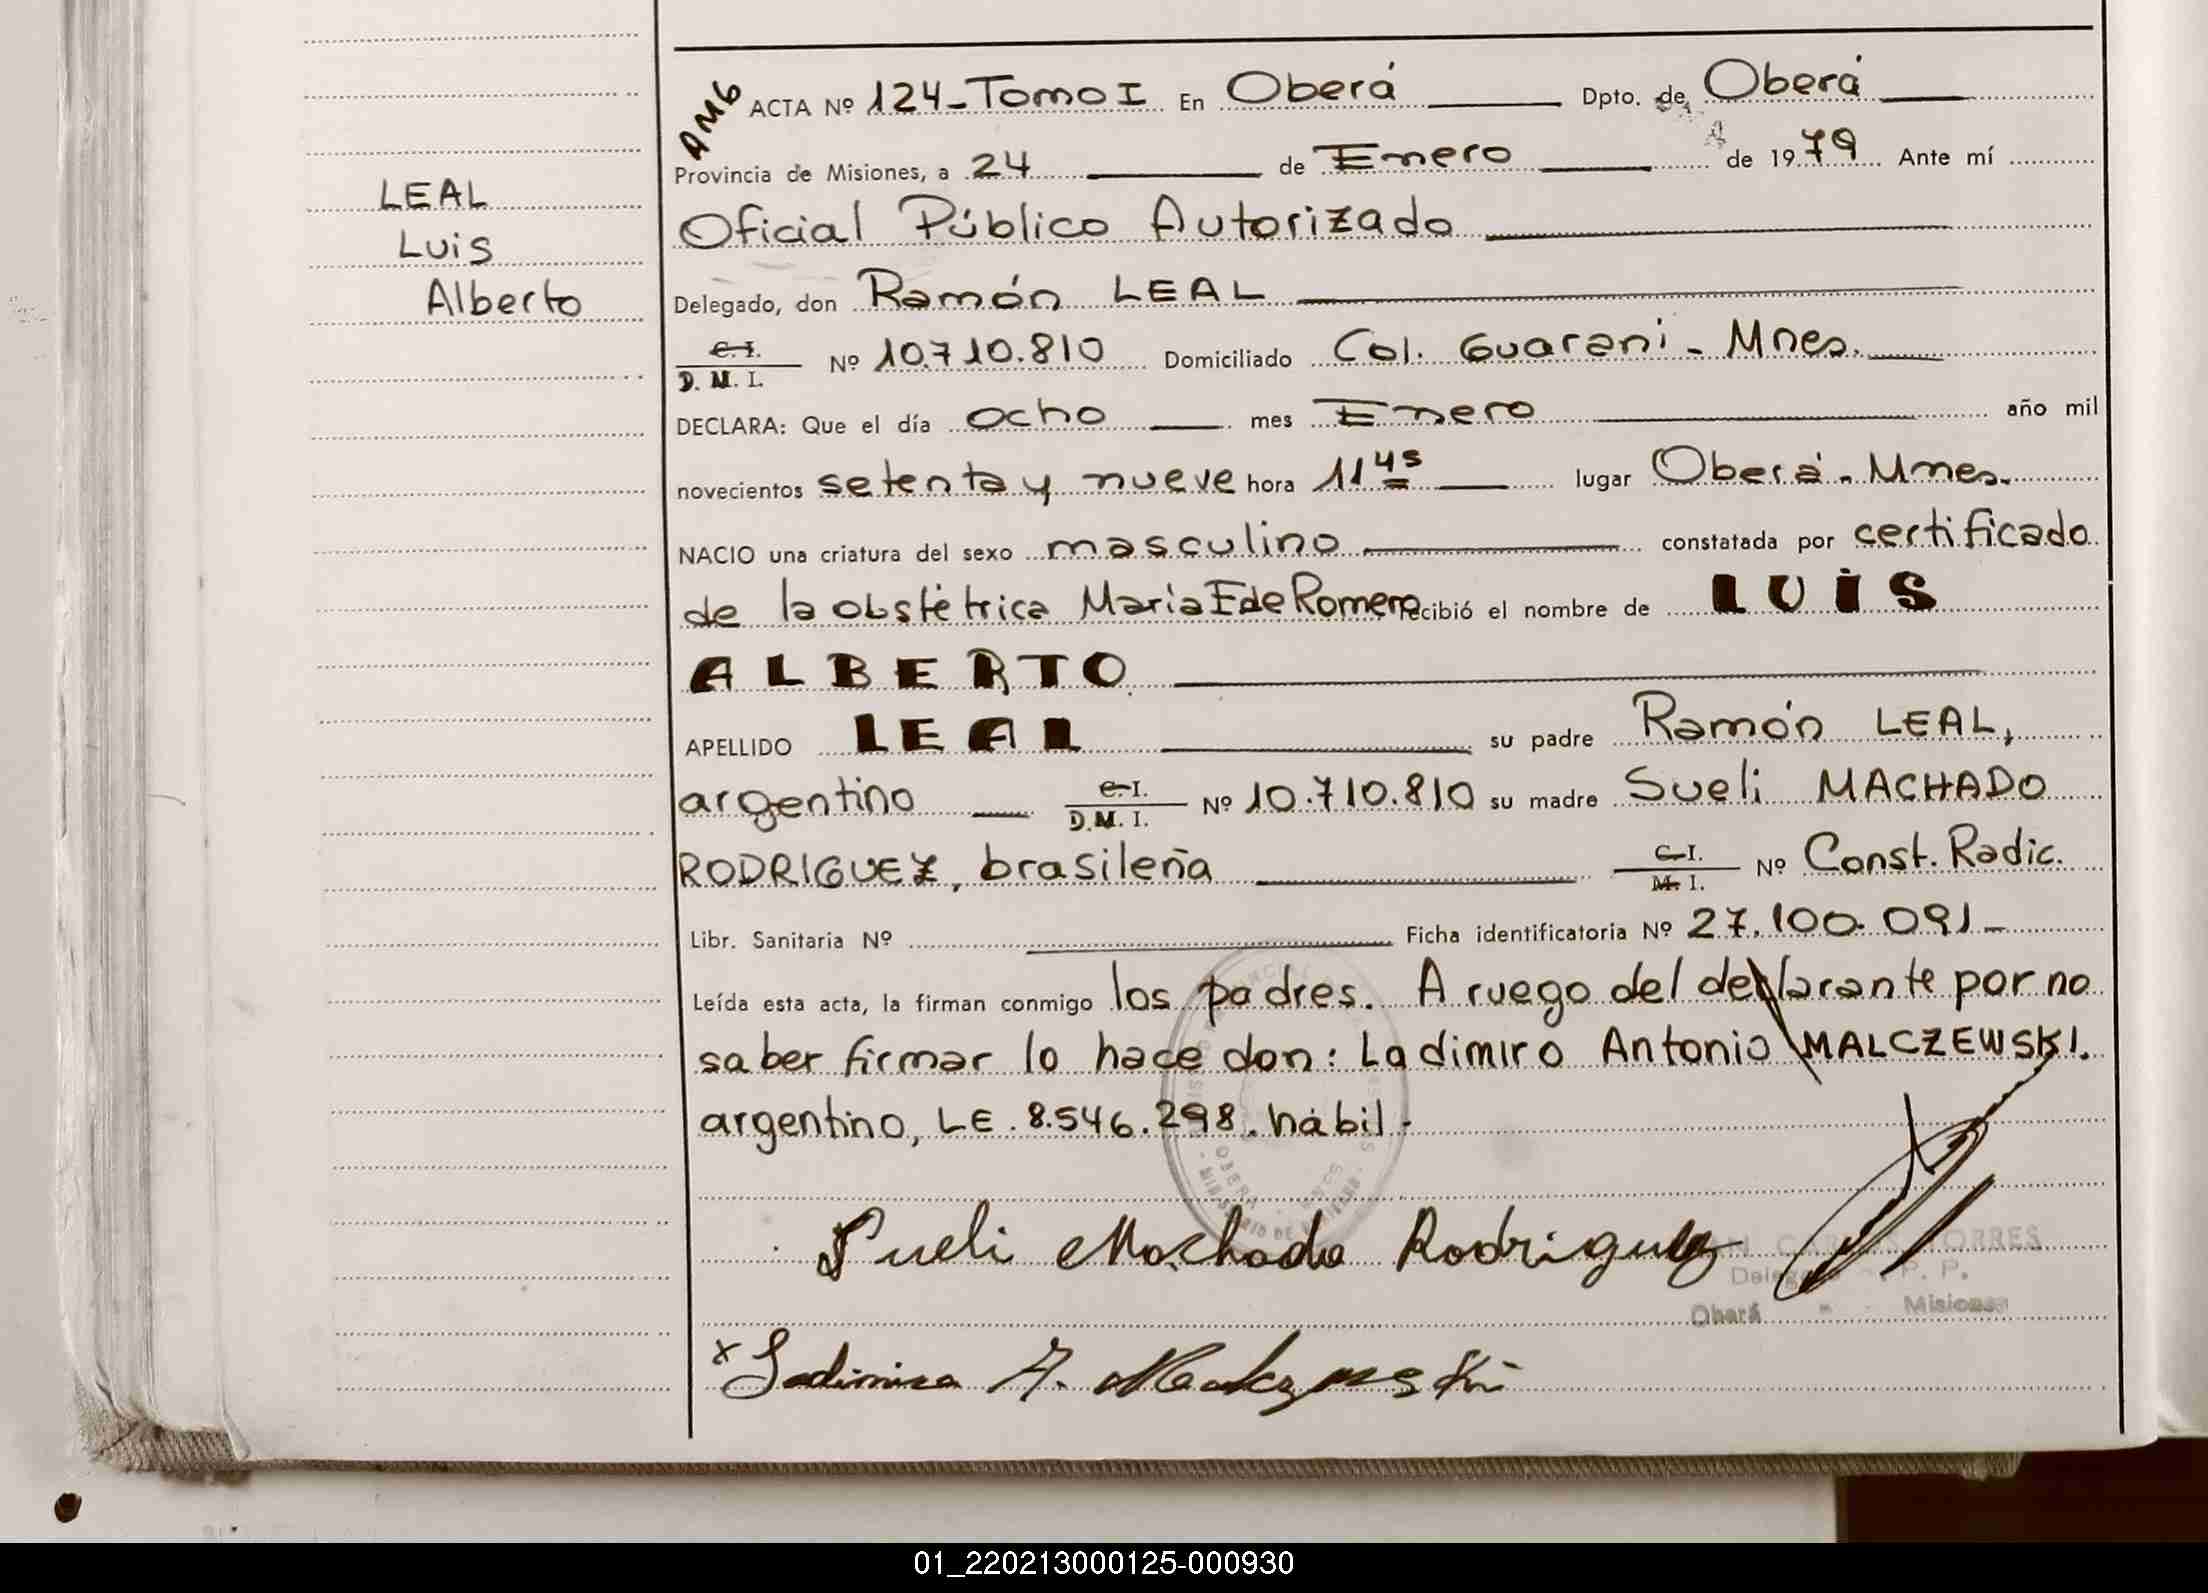 LEAL
Luis
Alberto
AMG
ACTA Nº 124-Tomo I En Oberá Dpto. de Oberá
Provincia de Misiones, a 24 de Enero de 1979 Ante mí
Oficial Público Autorizado
Delegado, don Ramón LEAL
C. I. / D. M. I. Nº 10.710.810 Domiciliado Col. Guarani - Mnes.
DECLARA: Que el día ocho mes Enero año mil
novecientos setenta y nueve hora 11 45 lugar Oberá - Mnes.
NACIO una criatura del sexo masculino constatada por certificado
de la obstétrica Maria E de Romero recibió el nombre de LUIS
ALBERTO
APELLIDO LEAL su padre Ramón LEAL,
argentino C. I. / D. M. I. Nº 10.710.810 su madre Sueli MACHADO
RODRIGUEZ, brasileña C. I. / M. I. Nº Const. Radic.
Libr. Sanitaria Nº Ficha identificatoria Nº 27.100.091-
Leída esta acta, la firman conmigo los padres. A ruego del declarante por no
saber firmar lo hace don: Ladimiro Antonio MALCZEWSKI.
argentino, LE. 8.546.298. hábil.
OBERA
Sueli Machado Rodriguez
TORRES
P. P.
Oberá - Misiones
x Ladimiro A. Malczewski
01_220213000125-000930